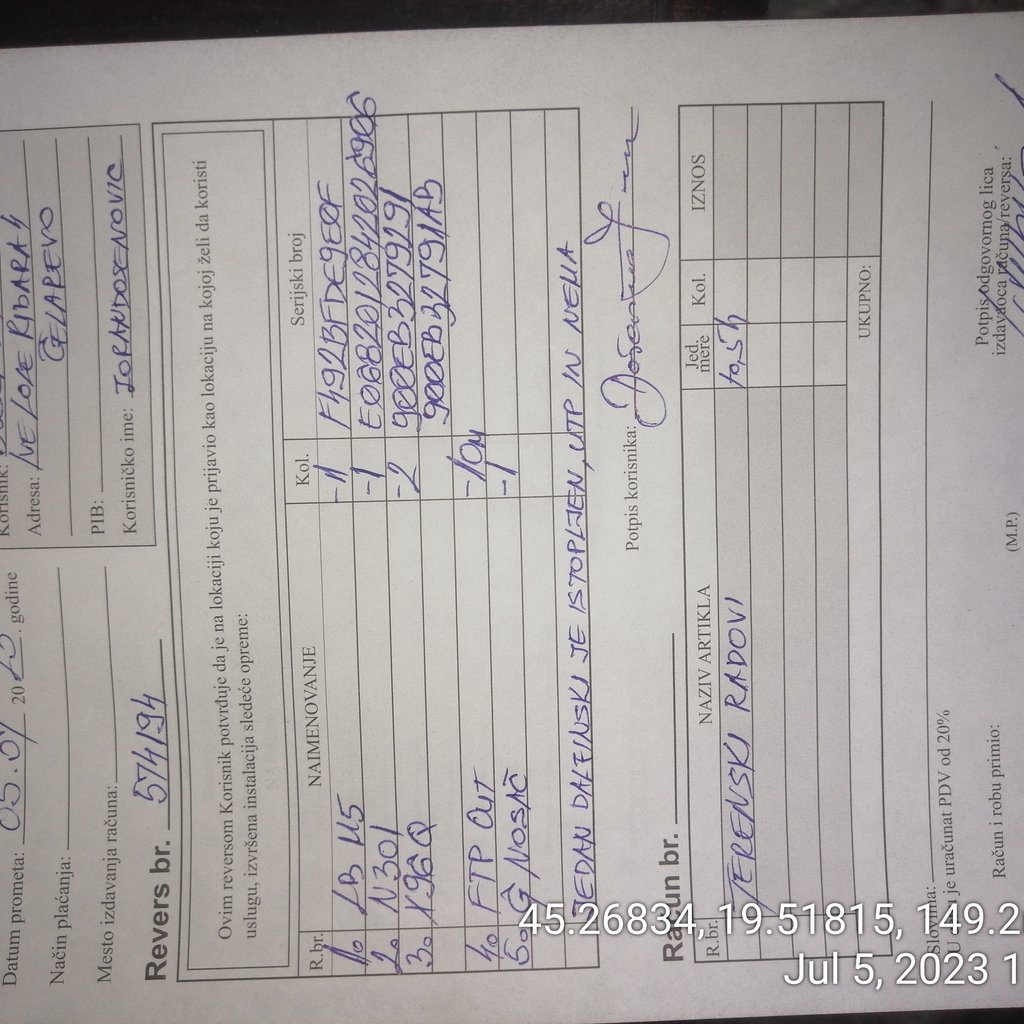 Datum prometa: 05.07 2023. godine
Način plaćanja:
Mesto izdavanja računa:
Korisnik:
Adresa: VELOJE RIBARA 4
ČELAREVO
PIB:
Korisničko ime:
Revers br. 574194
Ovim reversom Korisnik potvrđuje da je na lokaciji koju je prijavio kao lokaciju na kojoj želi da koristi
uslugu, izvršena instalacija sledeće opreme:
R.br. NAIMENOVANJE Kol. Serijski broj
1. LB M5 -1 F492BFDE9E0F
2. N301 -1
3. X96Q -2 900EB3279291
900EB32791AB
4. FTP OUT -10M
5. G NOSAČ -1
JEDAN DALJINSKI JE ISTOPLJEN, UTP IN NEMA
Potpis korisnika:
Račun br.
R.br. NAZIV ARTIKLA Jed. mere Kol. IZNOS
TERENSKI RADOVI
UKUPNO:
Slovima:
je uračunat PDV od 20%
Račun i robu primio:
(M.P.)
Potpis odgovornog lica
izdavaoca računa/reversa:
45.26834, 19.51815, 149.2
Jul 5, 2023 1